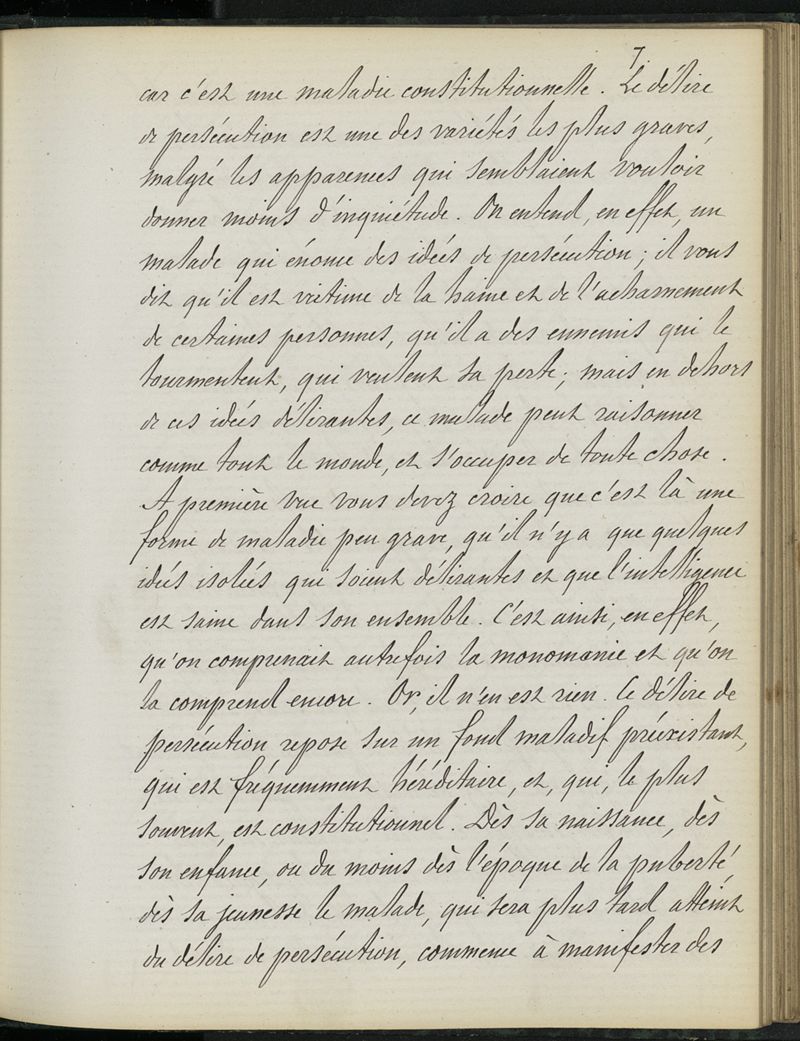 7
car c'est une maladie constitutionnelle. Le délire
de persécution est une des variétés les plus graves,
malgré les apparences qui semblaient vouloir
donner moins d'inquiétude. On entend, en effet, un
malade qui énonce des idées de persécution ; il vous
dit qu'il est victime de la haine et de l'acharnement
de certaines personnes, qu'il a des ennemis qui le
tourmentent, qui veulent sa perte ; mais en dehors
de ces idées délirantes, ce malade peut raisonner
comme tout le monde, et s'occuper de toute chose.
A première vue vous devez croire que c'est là une
forme de maladie peu grave, qu'il n'y a que quelques
idées isolées qui soient délirantes et que l'intelligence
est saine dans son ensemble. C'est ainsi, en effet,
qu'on comprenait autrefois la monomanie et qu'on
la comprend encore. Or, il n'en est rien. Ce délire de
persécution repose sur un fond maladif préexistant,
qui est fréquemment héréditaire, et, qui, le plus
souvent, est constitutionnel. Dès sa naissance, dès
son enfance, ou du moins dès l'époque de la puberté,
dès sa jeunesse le malade, qui sera plus tard atteint
du délire de persécution, commence à manifester des